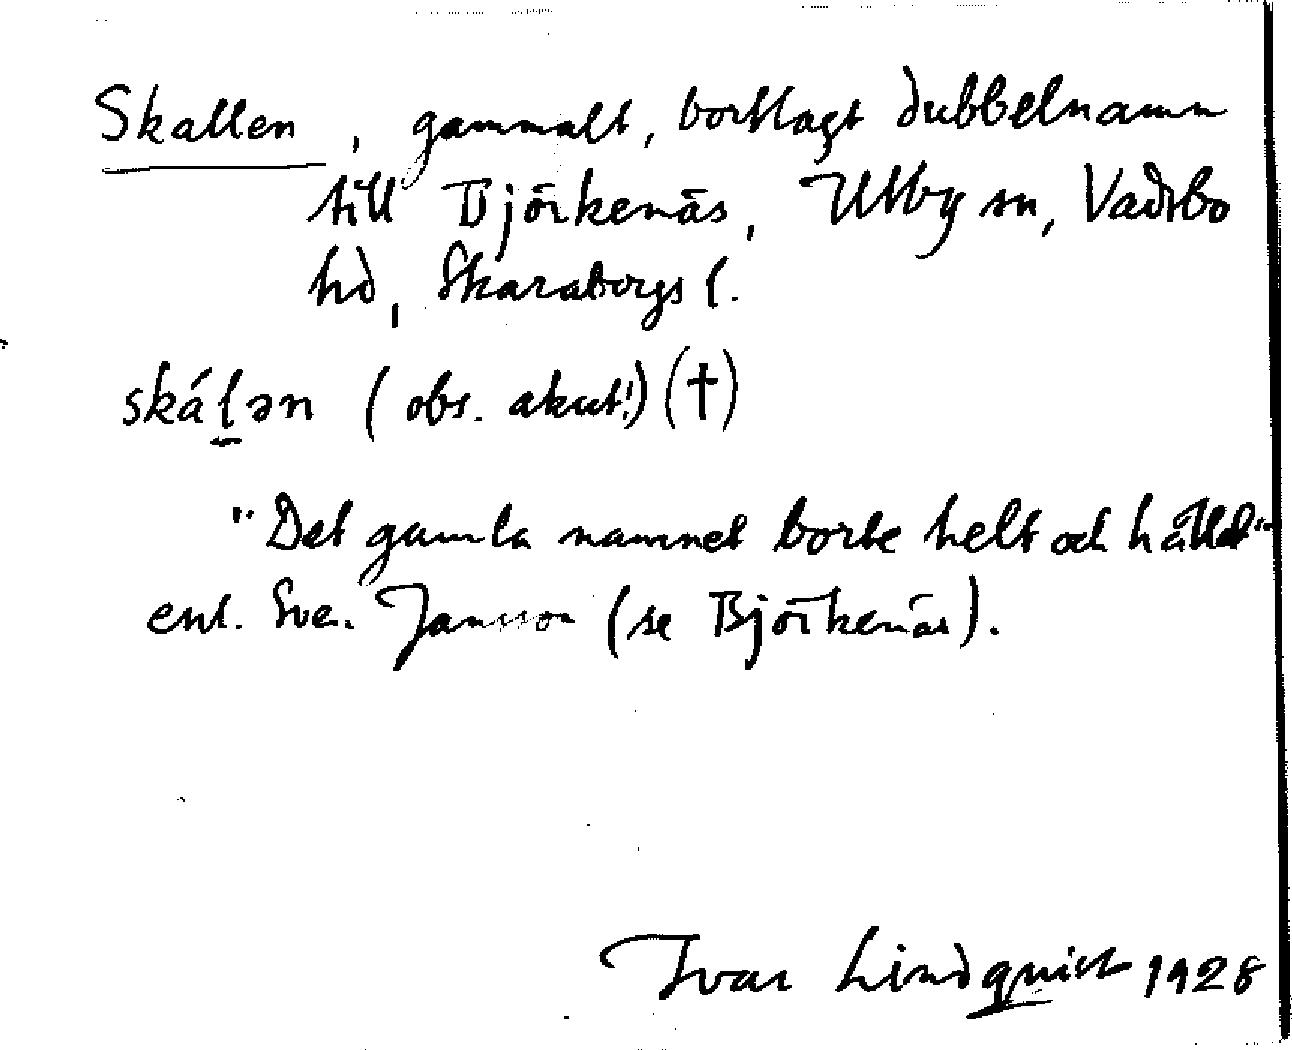 Skallen, gammalt, bortlagt dubbelnamn
till Björkenäs, Utby sn, Vadsbo
hd, Skaraborgs l.
skáḻən (obs. akut!) (†)
"Det gamla namnet borte helt och hållet"
enl. Sve. Jansson (se Björkenäs).
Ivar Lindquist 1928